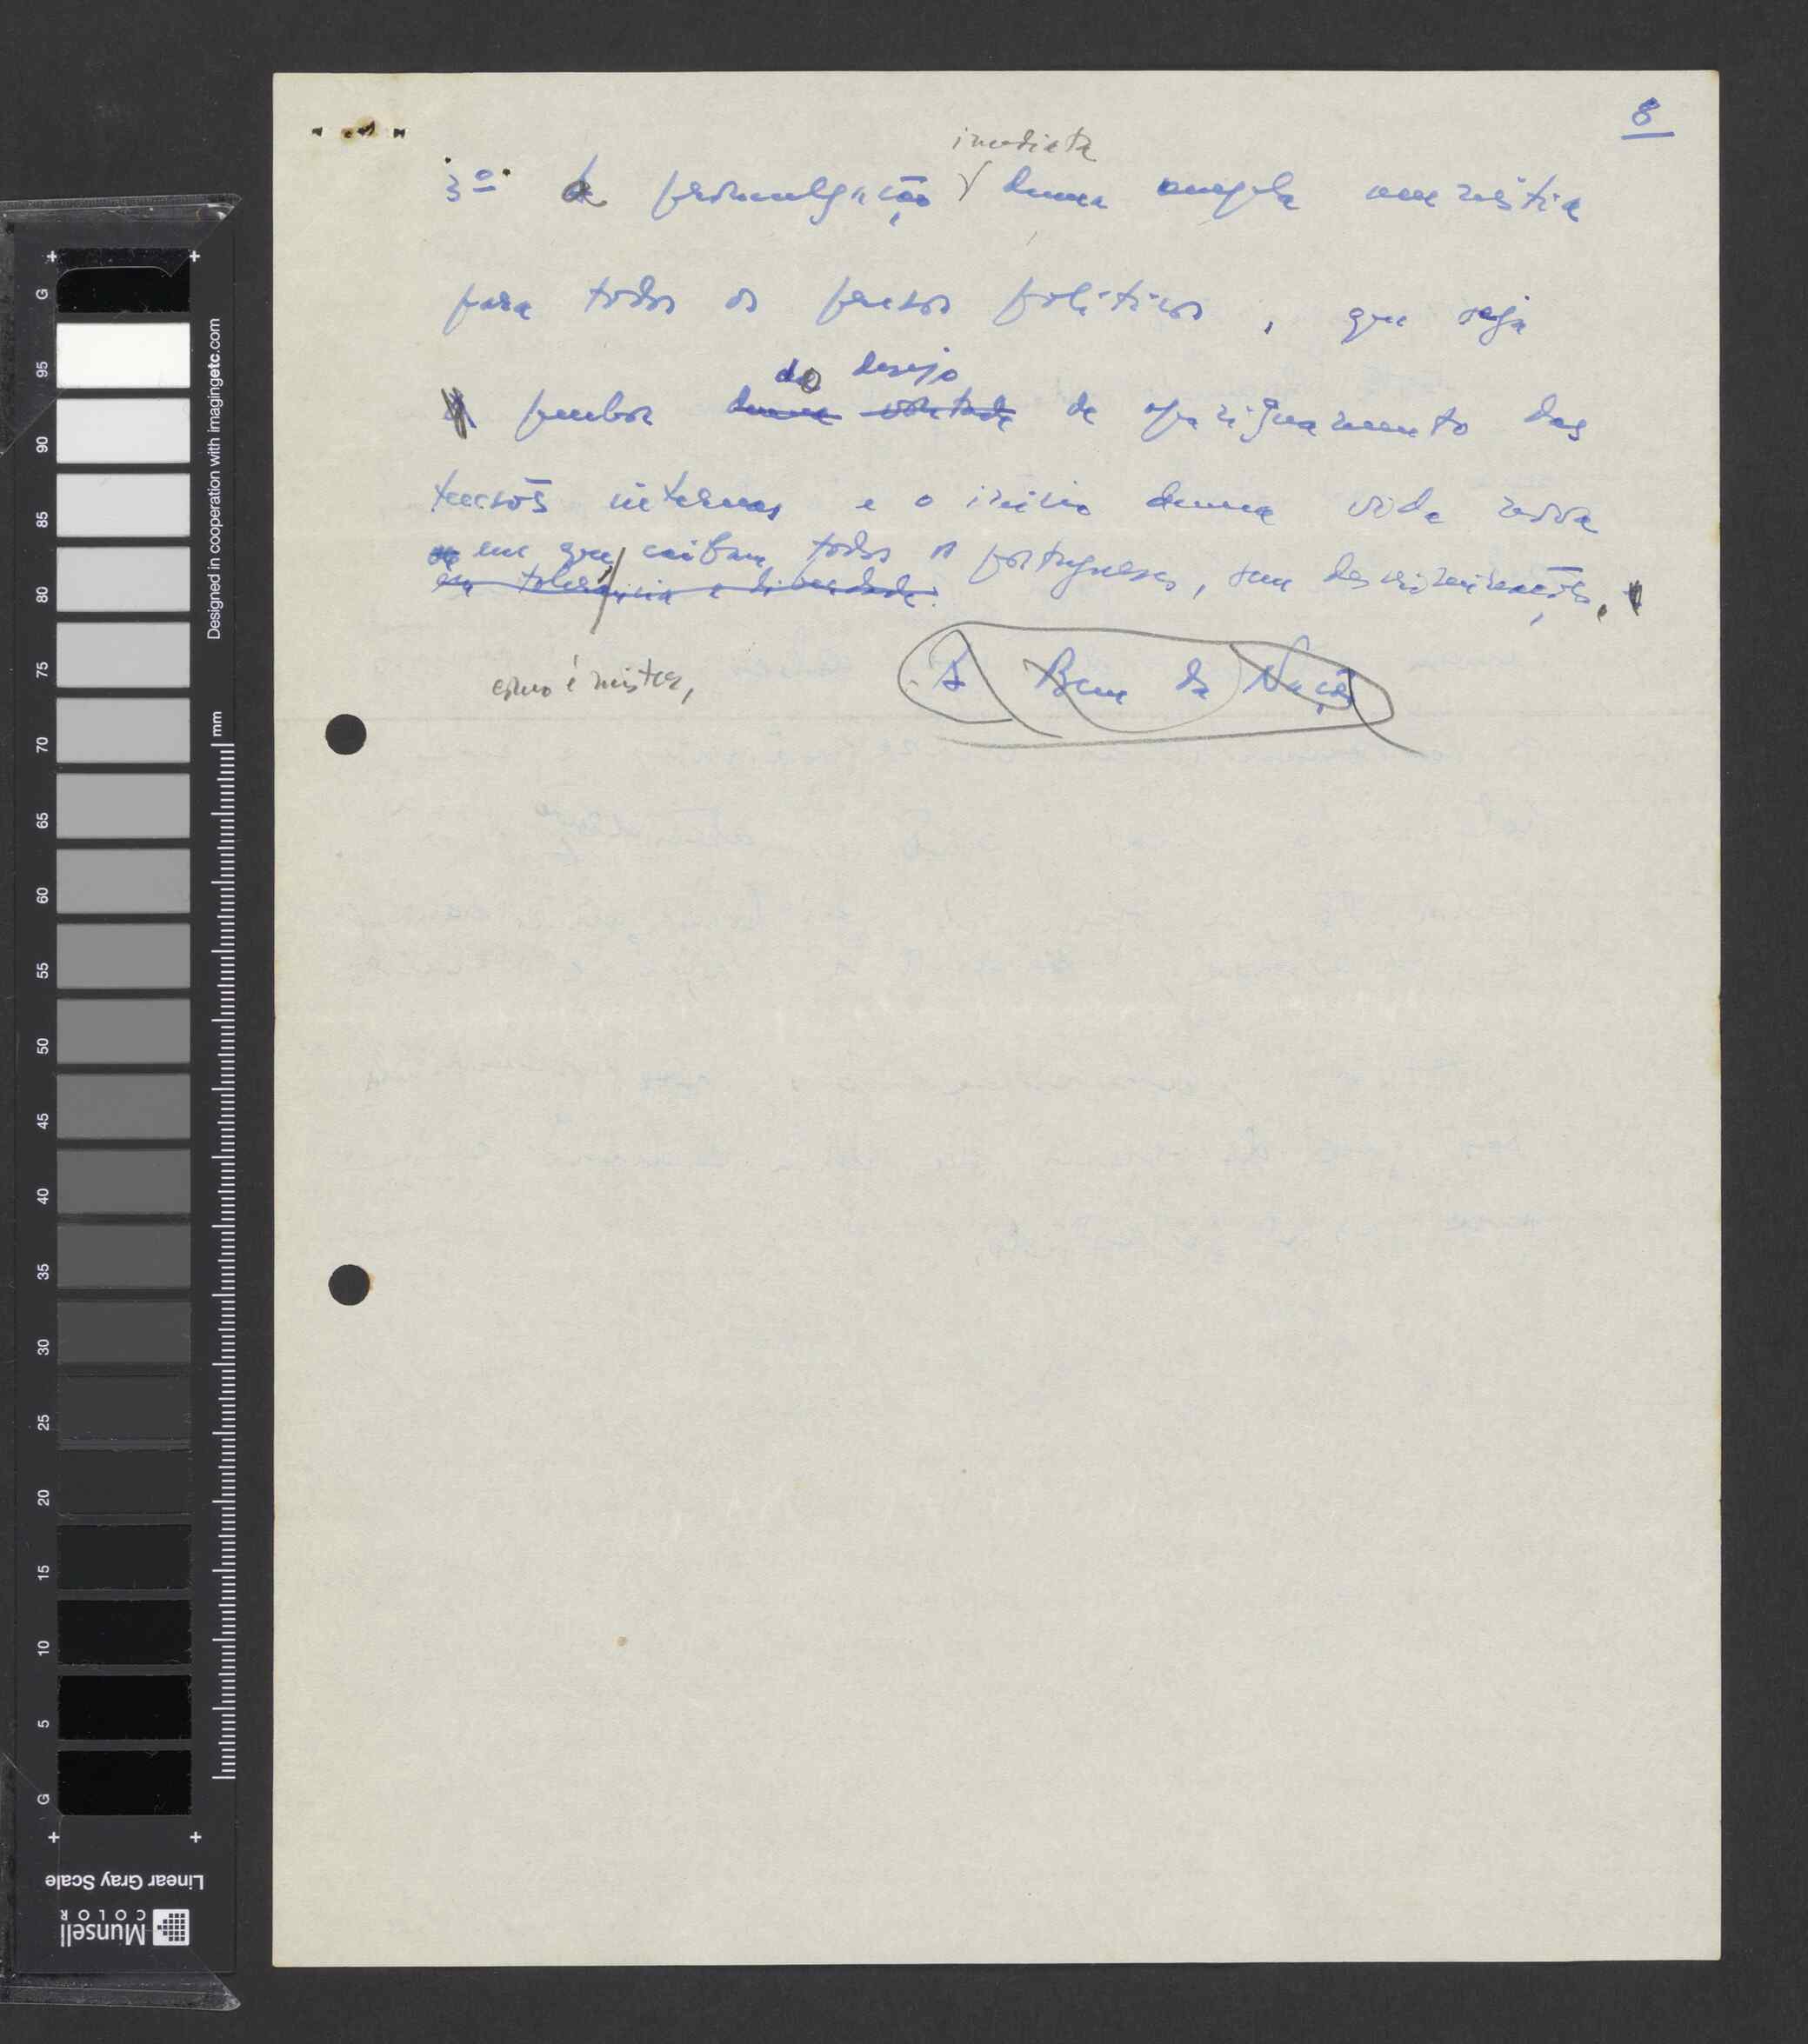 8
imediata
3º a promulgação duma ampla amnistia
para todos os presos políticos, que seja
do desejo
penhor duma vontade de apaziguamento das
tensões internas e o início duma vida nova
em que caibam todos os portugueses, sem descriminações,
em tolerância e liberdade.
como é mister,
A Bem da Nação
G
95
90
85
80
75
70
65
60
55
50
45
40
35
30
25
20
15
10
5
G
mm
Designed in cooperation with imagingetc.com
Linear Gray Scale
Munsell
COLOR